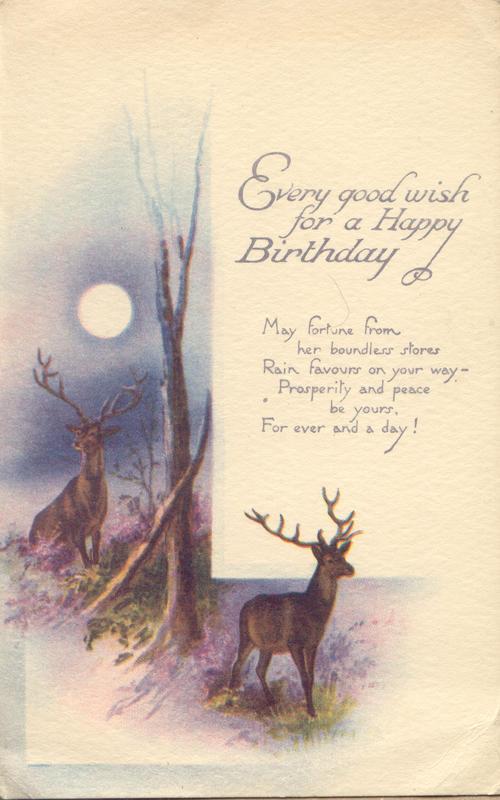 Every good wish
for a Happy
Birthday
May fortune from
her boundless stores
Rain favours on your way-
Prosperity and peace
be yours,
For ever and a day!